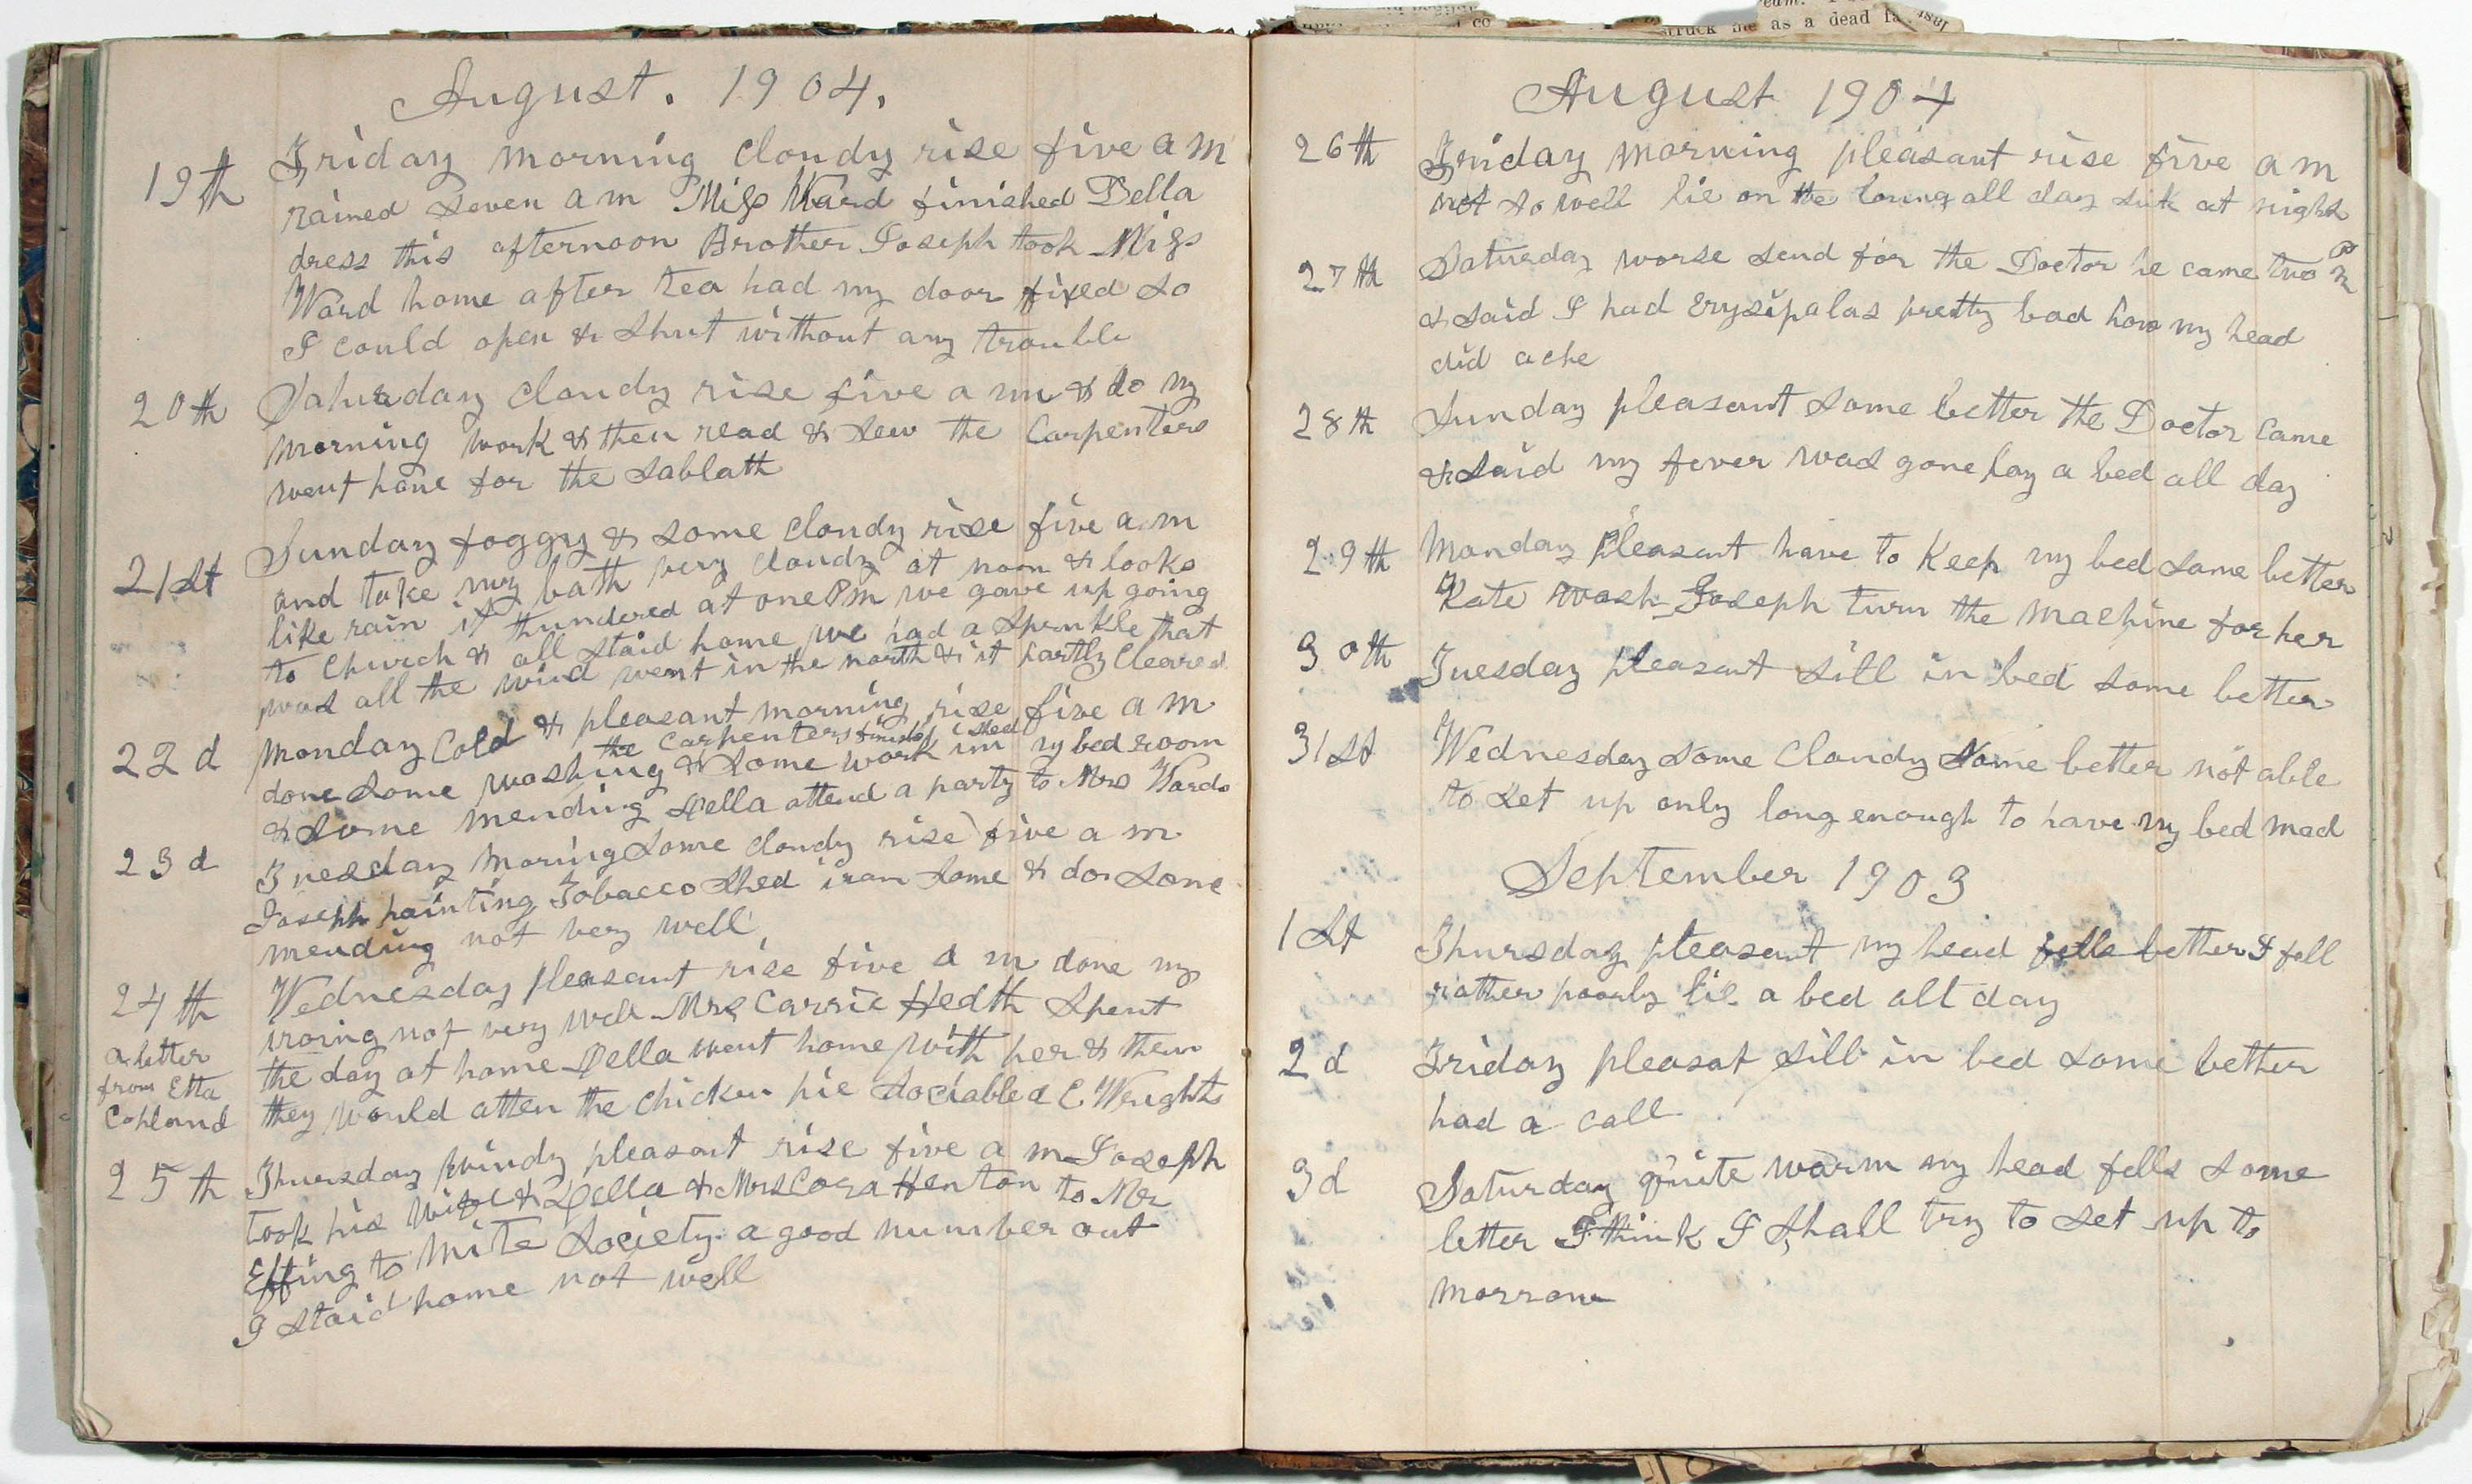 August. 1904.
19th Friday morning cloudy rise five a m
rained seven a m Miss Ward finished Della
dress this afternoon Brother Joseph took Miss
Ward home after tea had my door fixed so
I could open & shut without any trouble
20th Saturday cloudy rise five a m & do my
morning work & then read & sew the Carpenters
went home for the sabbath
21st Sunday foggy & some cloudy rise five a m
and take my bath very cloudy at noon & looks
like rain it thundered at one Pm we gave up going
to Church & all staid home we had a sprinkle that
was all the wind went in the north & it partly cleared
22d Monday Cold & pleasant morning rise five a m
the Carpenters finished shed
done some washing & some work in my bed room
& some mending Della attend a party to Mrs Wards
23d Tuesday moring some cloudy rise five a m
Joseph painting Tobacco shed iron some & do some
mending not very well
24th Wednesday pleasant rise five a m done my
iroing not very well Mrs Carrie Heath spent
a letter
from Etta
Copland
the day at home Della went home with her & then
they would atten the chicken pie sociable a C Wrights
25th Thursday windy pleasant rise five a m Joseph
took his wife & Della & Mrs Cora Henton to Mr
Effing to Mite Society a good number out
I staid home not well
August 1904
26th Friday morning pleasant rise five a m
not so well lie on the loung all day sick at night
27th Saturday worse send for the Doctor he came two P m
& said I had Erysipalas pretty bad how my head
did ache
28th Sunday pleasant some better the Doctor came
& said my fever was gone lay a bed all day
29th Monday pleasant have to Keep my bed some better
Kate wash Joseph turn the machine for her
30th Tuesday pleasant sill in bed some better
31st Wednesday some Cloudy some better not able
to set up only long enough to have my bed mad
September 1903
1st Thursday pleasant my head fells better I fell
rather poorly lie a bed all day
2d Friday pleasat sill in bed some better
had a call
3d Saturday quite warm my head fells some
better I think I shall try to set up to
morrow
struck me as a dead fa